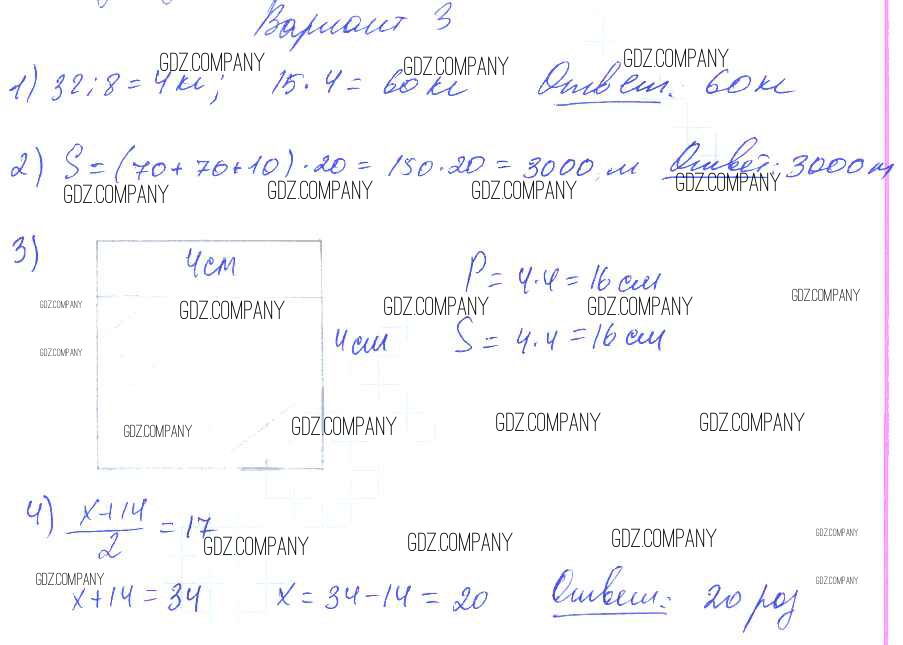 Вариант 3
GDZ.COMPANY GDZ.COMPANY GDZ.COMPANY
1) 32:8=4кг; 15·4=60кг Ответ: 60кг
2) S=(70+70+10)·20=150·20=3000 м Ответ: 3000м
GDZ.COMPANY GDZ.COMPANY GDZ.COMPANY GDZ.COMPANY
3) 4см P=4·4=16см
GDZ.COMPANY GDZ.COMPANY GDZ.COMPANY GDZ.COMPANY GDZ.COMPANY
4см S=4·4=16см
GDZ.COMPANY
GDZ.COMPANY GDZ.COMPANY GDZ.COMPANY GDZ.COMPANY
4) x+14
2
=17
GDZ.COMPANY GDZ.COMPANY GDZ.COMPANY GDZ.COMPANY
GDZ.COMPANY GDZ.COMPANY
x+14=34 x=34-14=20 Ответ: 20 роз